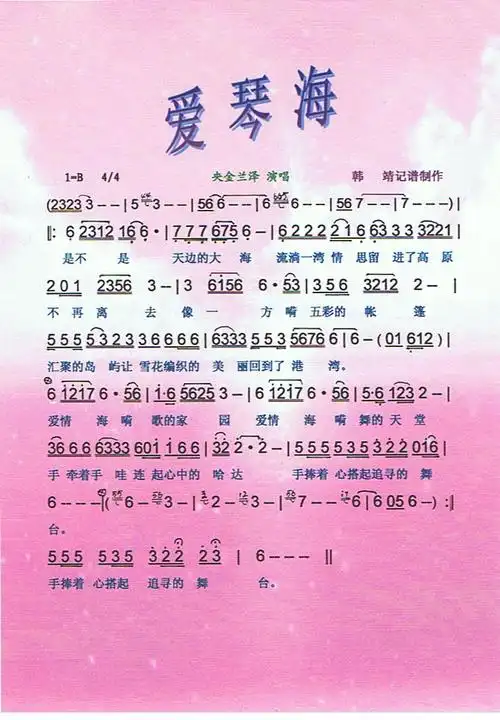 爱琴海
1=B 4/4 央金兰泽 演唱 韩 靖记谱制作
(2323 3 - - | 5 3 - - | 566 - - 6 | 6 6 - - | 567 - - 7 - - - ) |
‖: 6 2312 166 · | 777 675 6 - | 6222 216 6333 3221 |
是不 是 天边的大 海 流淌一湾 情 思留 进了高 原
201 2356 3 - | 3 6156 6 · 53 | 356 3212 2 - |
不 再 离 去 像 一 方 哨 五彩的 帐 篷
555 5323 36 666 | 6333 553 5676 6 | 6 - (01 612) |
汇聚的岛 屿让 雪花编织的 美 丽回到了 港 湾。
6 1217 6 · 56 | 1·6 5625 3 - | 6 1217 6 · 56 | 5·6 123 2 - |
爱情 海 哨 歌的家 园 爱情 海 哨 舞的天 堂
3666 6333 601 166 | 32 2 · 2 - | 555 535 3 2 2 2 016 |
手 牵着手 哇 连 起心中的 哈达 手捧着 心搭起 追寻的 舞
6 - - - | ( 6 - 3 - | 2 - 3 - | 7 - - 6 | 6 056 - ) :‖
台。
555 535 322 23 | 6 - - - ‖
手捧着 心搭起 追寻的 舞 台。